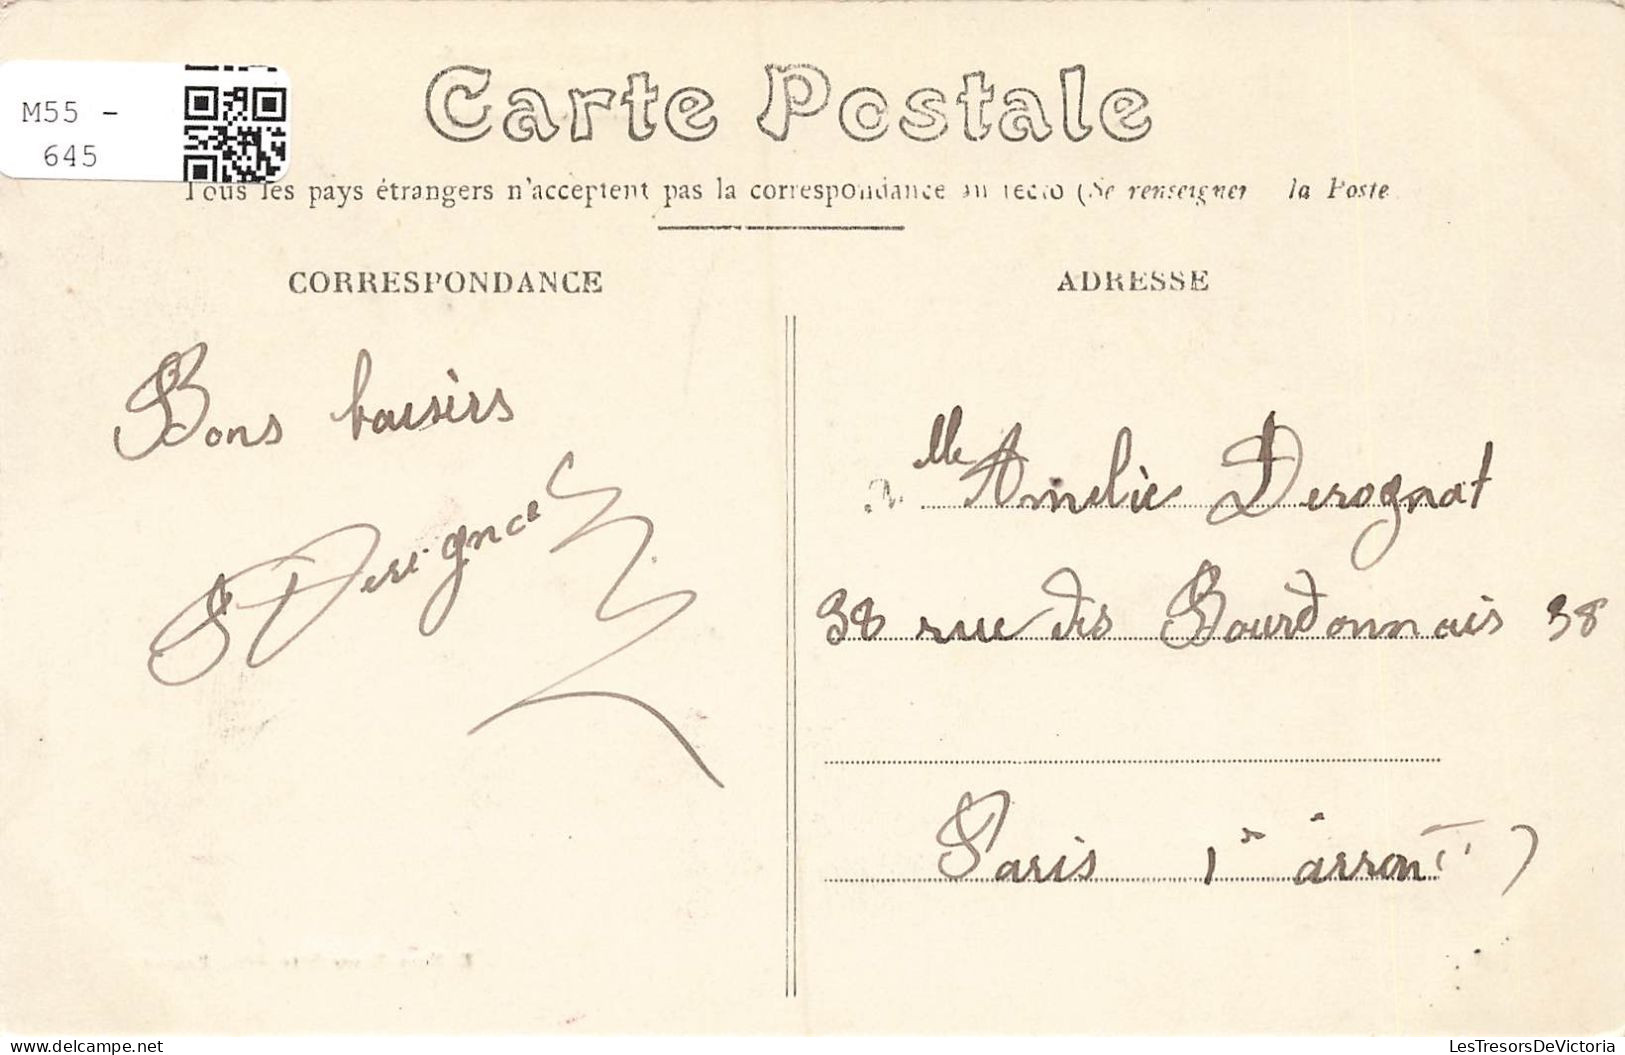 M55 -
645
Carte Postale
Tous les pays étrangers n'acceptent pas la correspondance au recto (Se renseigner la Poste
CORRESPONDANCE
ADRESSE
Bons baisirs
Mlle Amelie Derognat
38 rue des Bourdonnais 38
Paris 1r arront
LesTresorsDeVictoria
www.delcampe.net